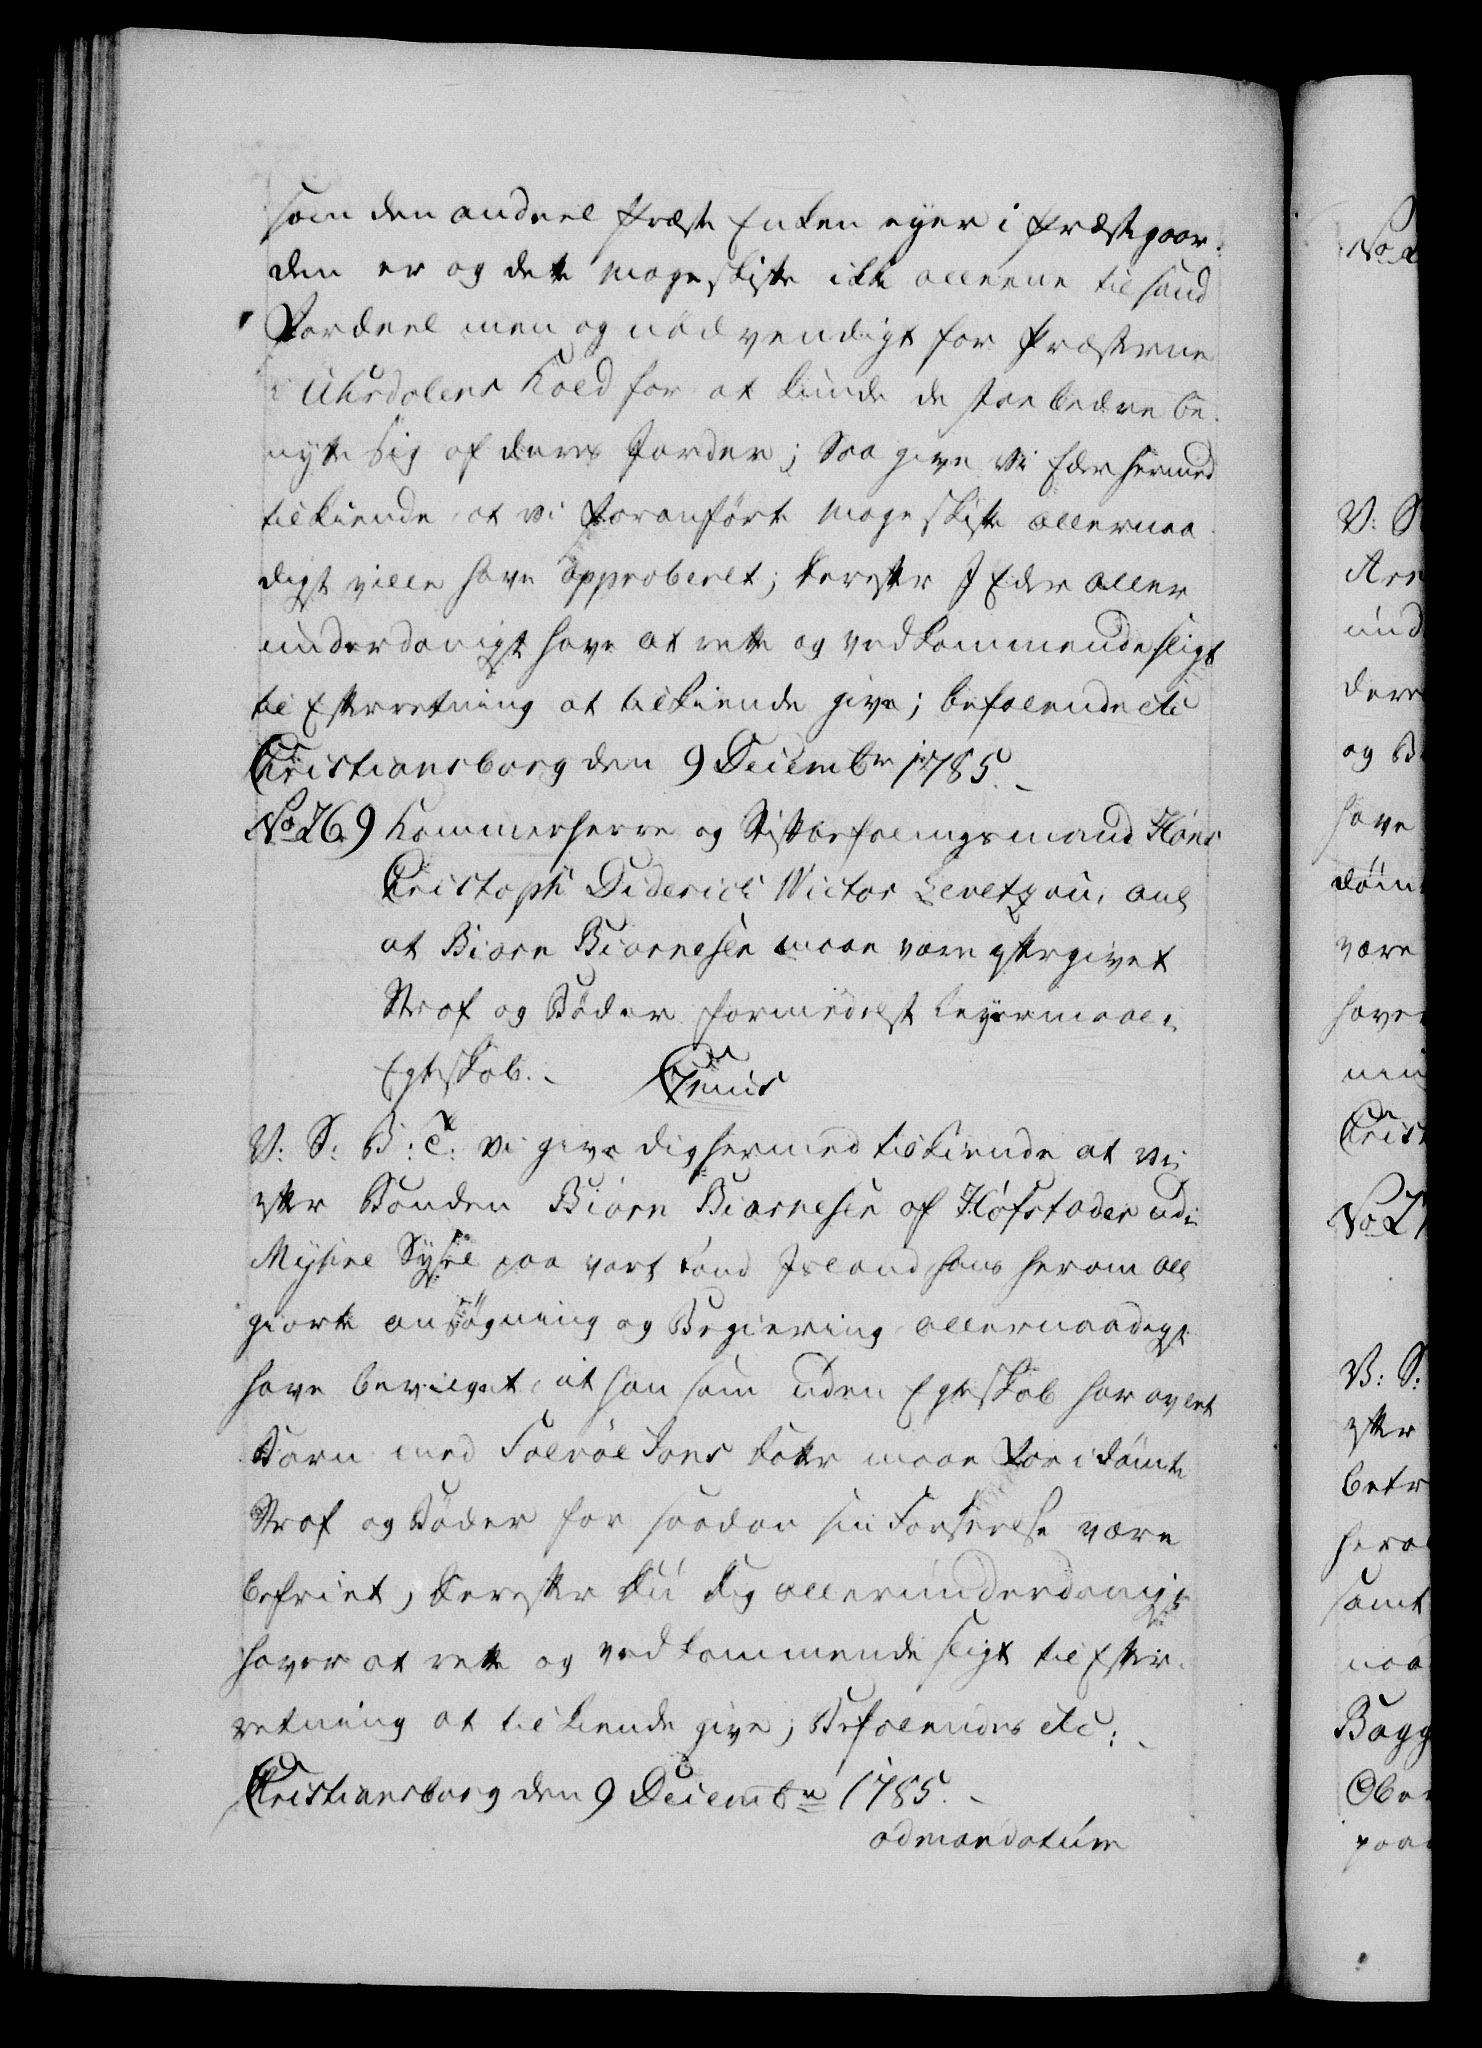 som den andeel Præste Enken eyer i Præstegaar-
den er og dette Mageskifte ikke alleene til hans
Fordeel men og nødvendigt for Præsterne
i Uhrsdalens Kald for at kunde de saa bedre be-
nytte sig af deres Jorder; Saa give Vi Eder hermed
tilkiende at vi foranførte Mageskifte allernaa-
digst ville have approberet; derefter I Eder aller
underdanigst have at rette og vedkommende sligt
til Efterretning at tilkiende give; befalende etc
Christiansborg den 9 Decembr 1785.
No 769 Kammerherre og Stiftbefalingsmand Hans
Christoph Diderich Victor Levetzau, anl
at Biørn Biørnesen maae være eftergivet
Straf og Bøder formedelst Leyermaal i
Egteskab. Gratis
V: S: B: T: Vi give dig hermed tilkiende at vi
efter Bonden Biørn Biørnesen af Hofstader udi
Myhre Syssel paa vort Land Island hans herom all
giorte ansøgning og Begiering allernaadigst
have bevilget, at han som uden Egteskab har avlet
Barn med Jons Datter maae for idømte
Straf og Bøder for saadan sin Forseelse være
befriet, derefter du dig allerunderdanigst
haver at rette og vedkommende sligt til Efter-
retning at tilkiende give; Befalendes etc:
Christiansborg den 9 Decembr 1785.
ad mandatum